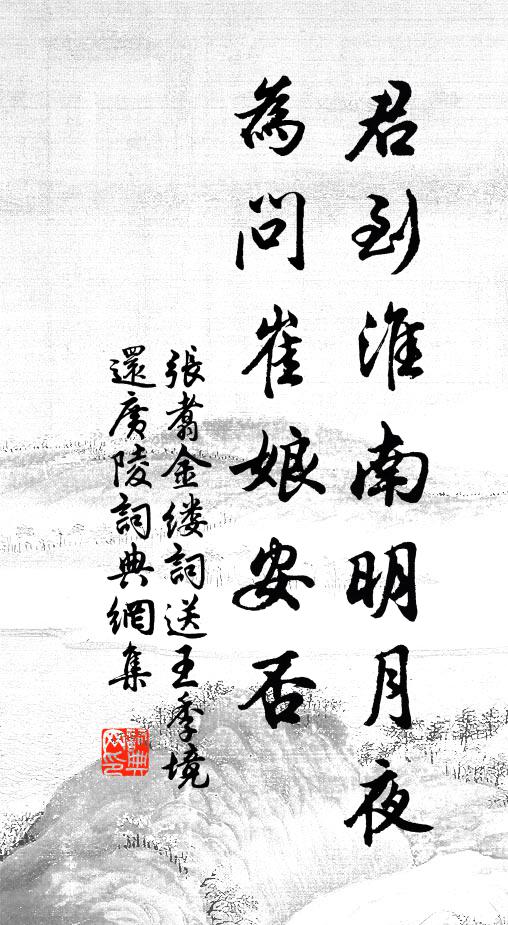 君到淮南明月夜
為問崔娘安否
張翥金缕詞送王季境
還廣陵詞典網集